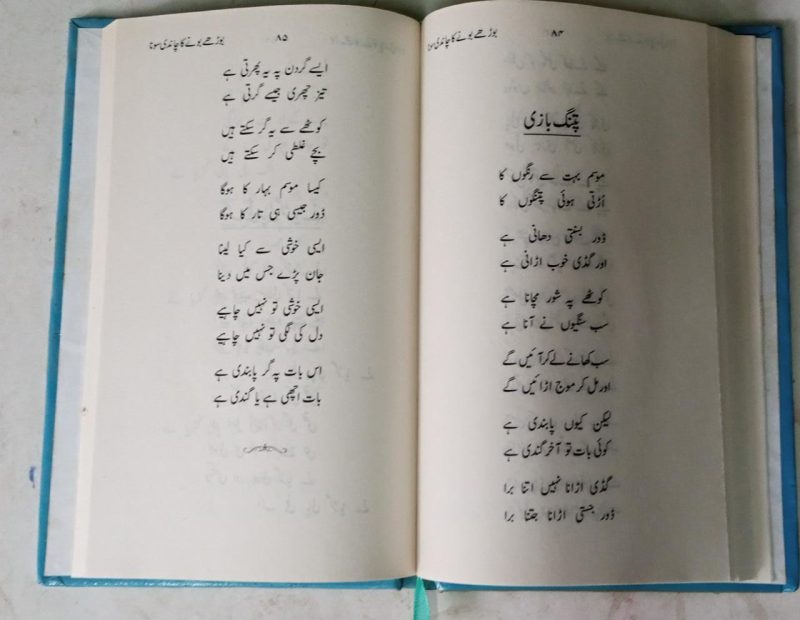 ۸۴
بوڑھے بونے کا چاندی سونا
پتنگ بازی
موسم بہت سے رنگوں کا
اُڑتی ہوئی پتنگوں کا
ڈور بسنتی دھانی ہے
اور گڈی خوب اڑانی ہے
کوٹھے پہ شور مچانا ہے
سب سنگیوں نے آنا ہے
سب کھانے لے کر آئیں گے
اور مل کر موج اڑائیں گے
لیکن کیوں پابندی ہے
کوئی بات تو آخر گندی ہے
گڈی اڑانا نہیں اتنا برا
ڈور جستی اڑانا جتنا برا
۸۵
بوڑھے بونے کا چاندی سونا
ایسے گردن پہ یہ پھرتی ہے
تیز چھری جیسے گرتی ہے
کوٹھے سے یہ گر سکتے ہیں
بچے غلطی کر سکتے ہیں
کیسا موسم بہار کا ہوگا
ڈور جیسی ہی تار کا ہوگا
ایسی خوشی سے کیا لینا
جان پڑے جس میں دینا
ایسی خوشی تو نہیں چاہیے
دل کی لگی تو نہیں چاہیے
اس بات پہ گر پابندی ہے
بات اچھی ہے یا گندی ہے